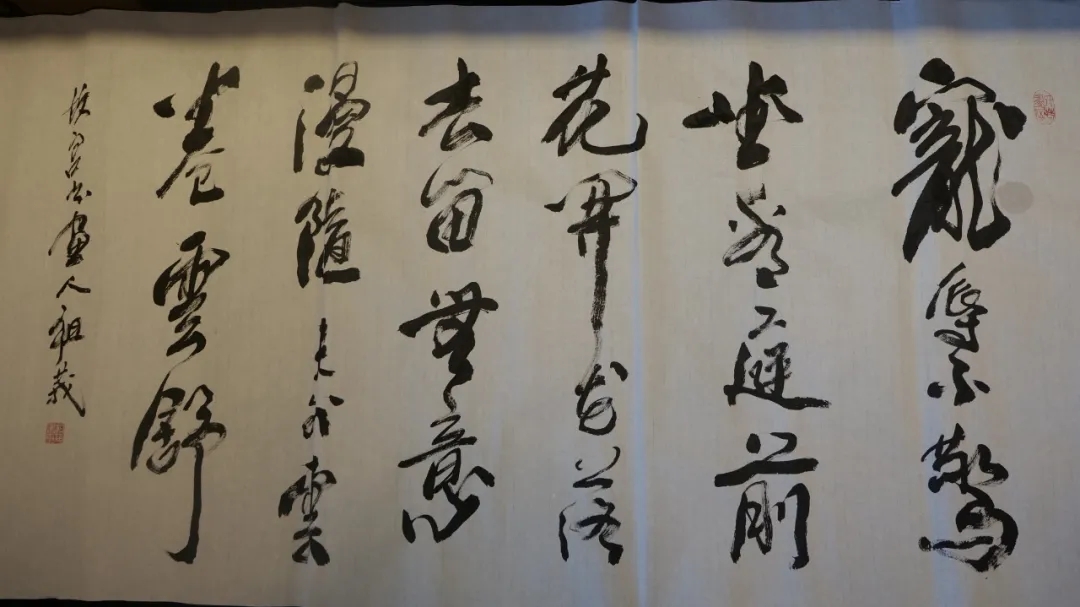 寵辱不驚
坐看庭前
花開花落
去留無意
漫隨天外雲
卷雲舒
宮書畫人祖